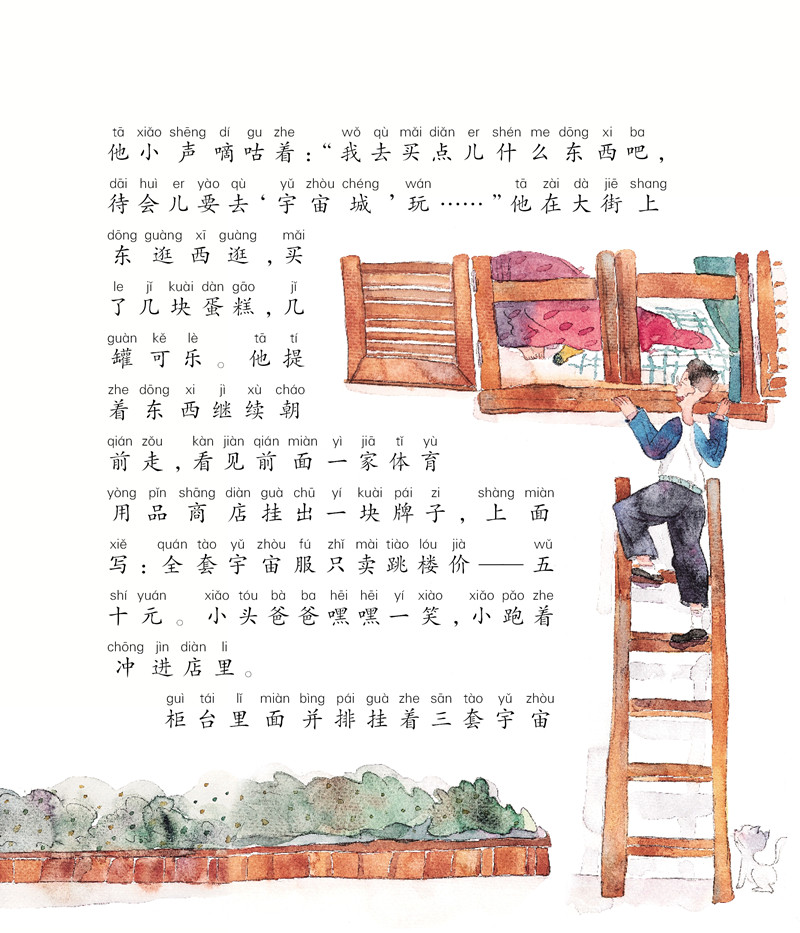 tā xiǎo shēng dí gu zhe wǒ qù mǎi diǎn er shén me dōng xi ba
他小声嘀咕着：“我去买点儿什么东西吧，
dāi huì er yào qù yǔ zhòu chéng wán tā zài dà jiē shang
待会儿要去‘宇宙城’玩……”他在大街上
dōng guàng xī guàng mǎi
东逛西逛，买
le jǐ kuài dàn gāo jǐ
了几块蛋糕，几
guàn kě lè tā tí
罐可乐。他提
zhe dōng xi jì xù cháo
着东西继续朝
qián zǒu kàn jiàn qián miàn yì jiā tǐ yù
前走，看见前面一家体育
yòng pǐn shāng diàn guà chū yí kuài pái zi shàng miàn
用品商店挂出一块牌子，上面
xiě quán tào yǔ zhòu fú zhǐ mài tiào lóu jià wǔ
写：全套宇宙服只卖跳楼价——五
shí yuán xiǎo tóu bà ba hēi hēi yí xiào xiǎo pǎo zhe
十元。小头爸爸嘿嘿一笑，小跑着
chōng jìn diàn li
冲进店里。
guì tái lǐ miàn bìng pái guà zhe sān tào yǔ zhòu
柜台里面并排挂着三套宇宙